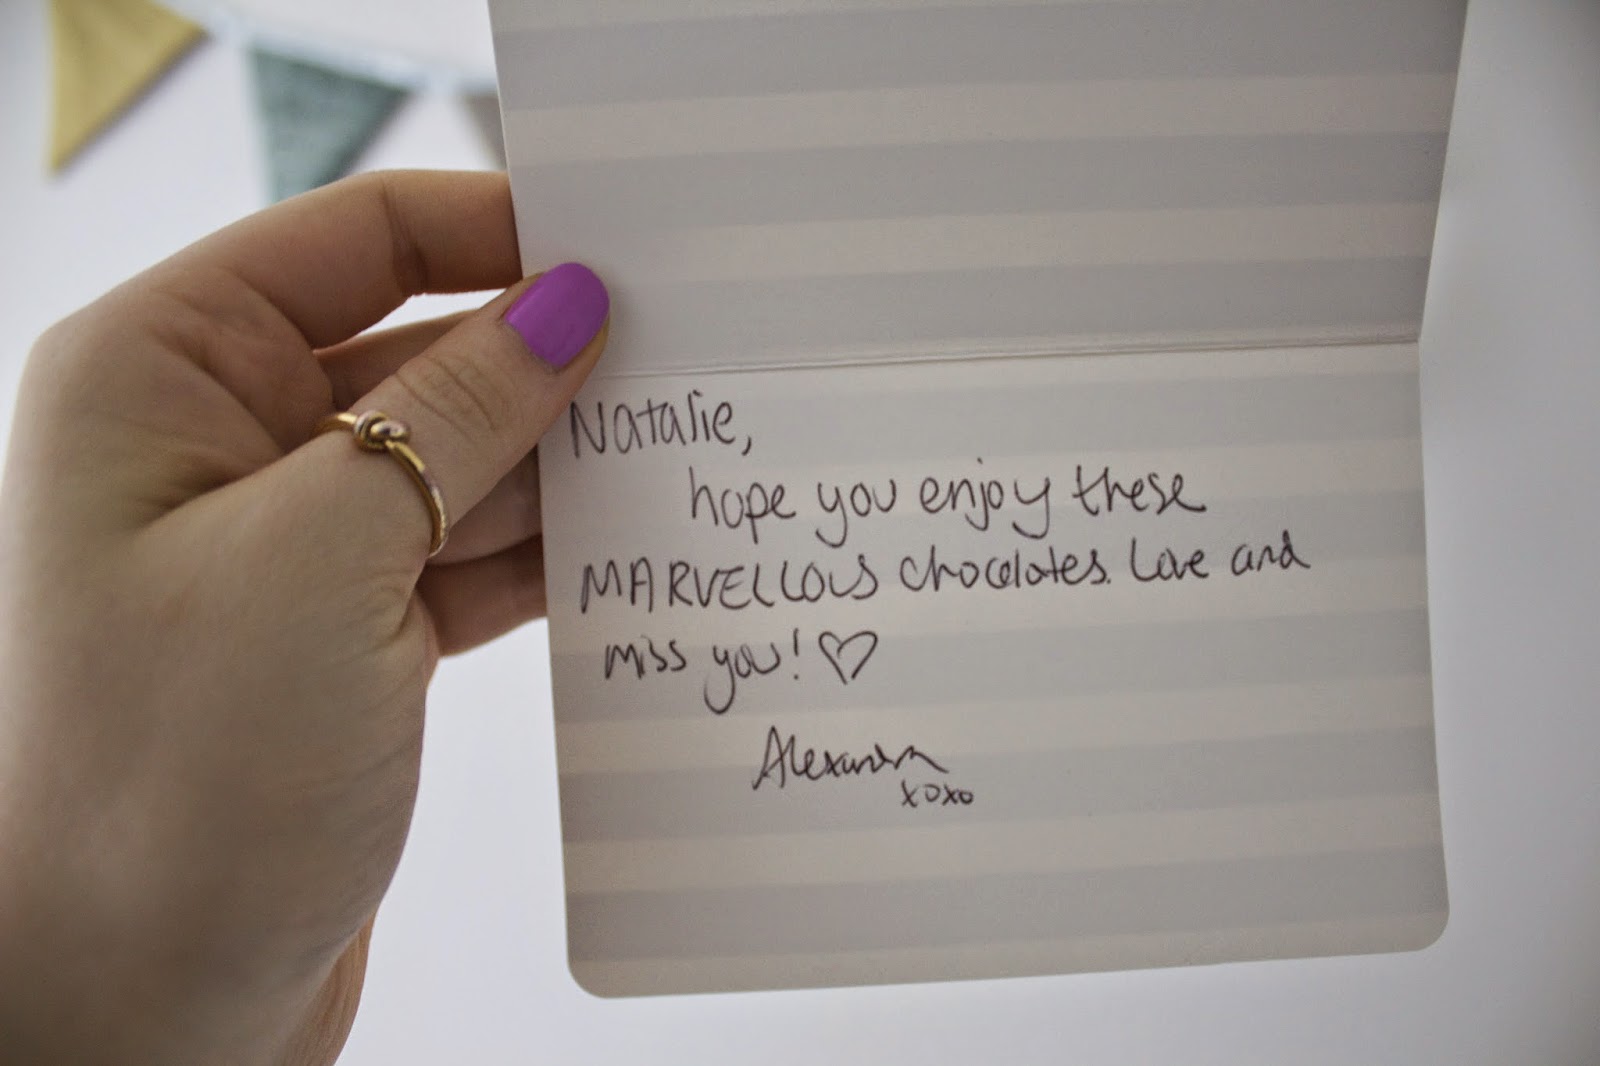 Natalie,
hope you enjoy these
MARVELLOUS chocolates. Love and
miss you! ♡
Alexandra
xoxo